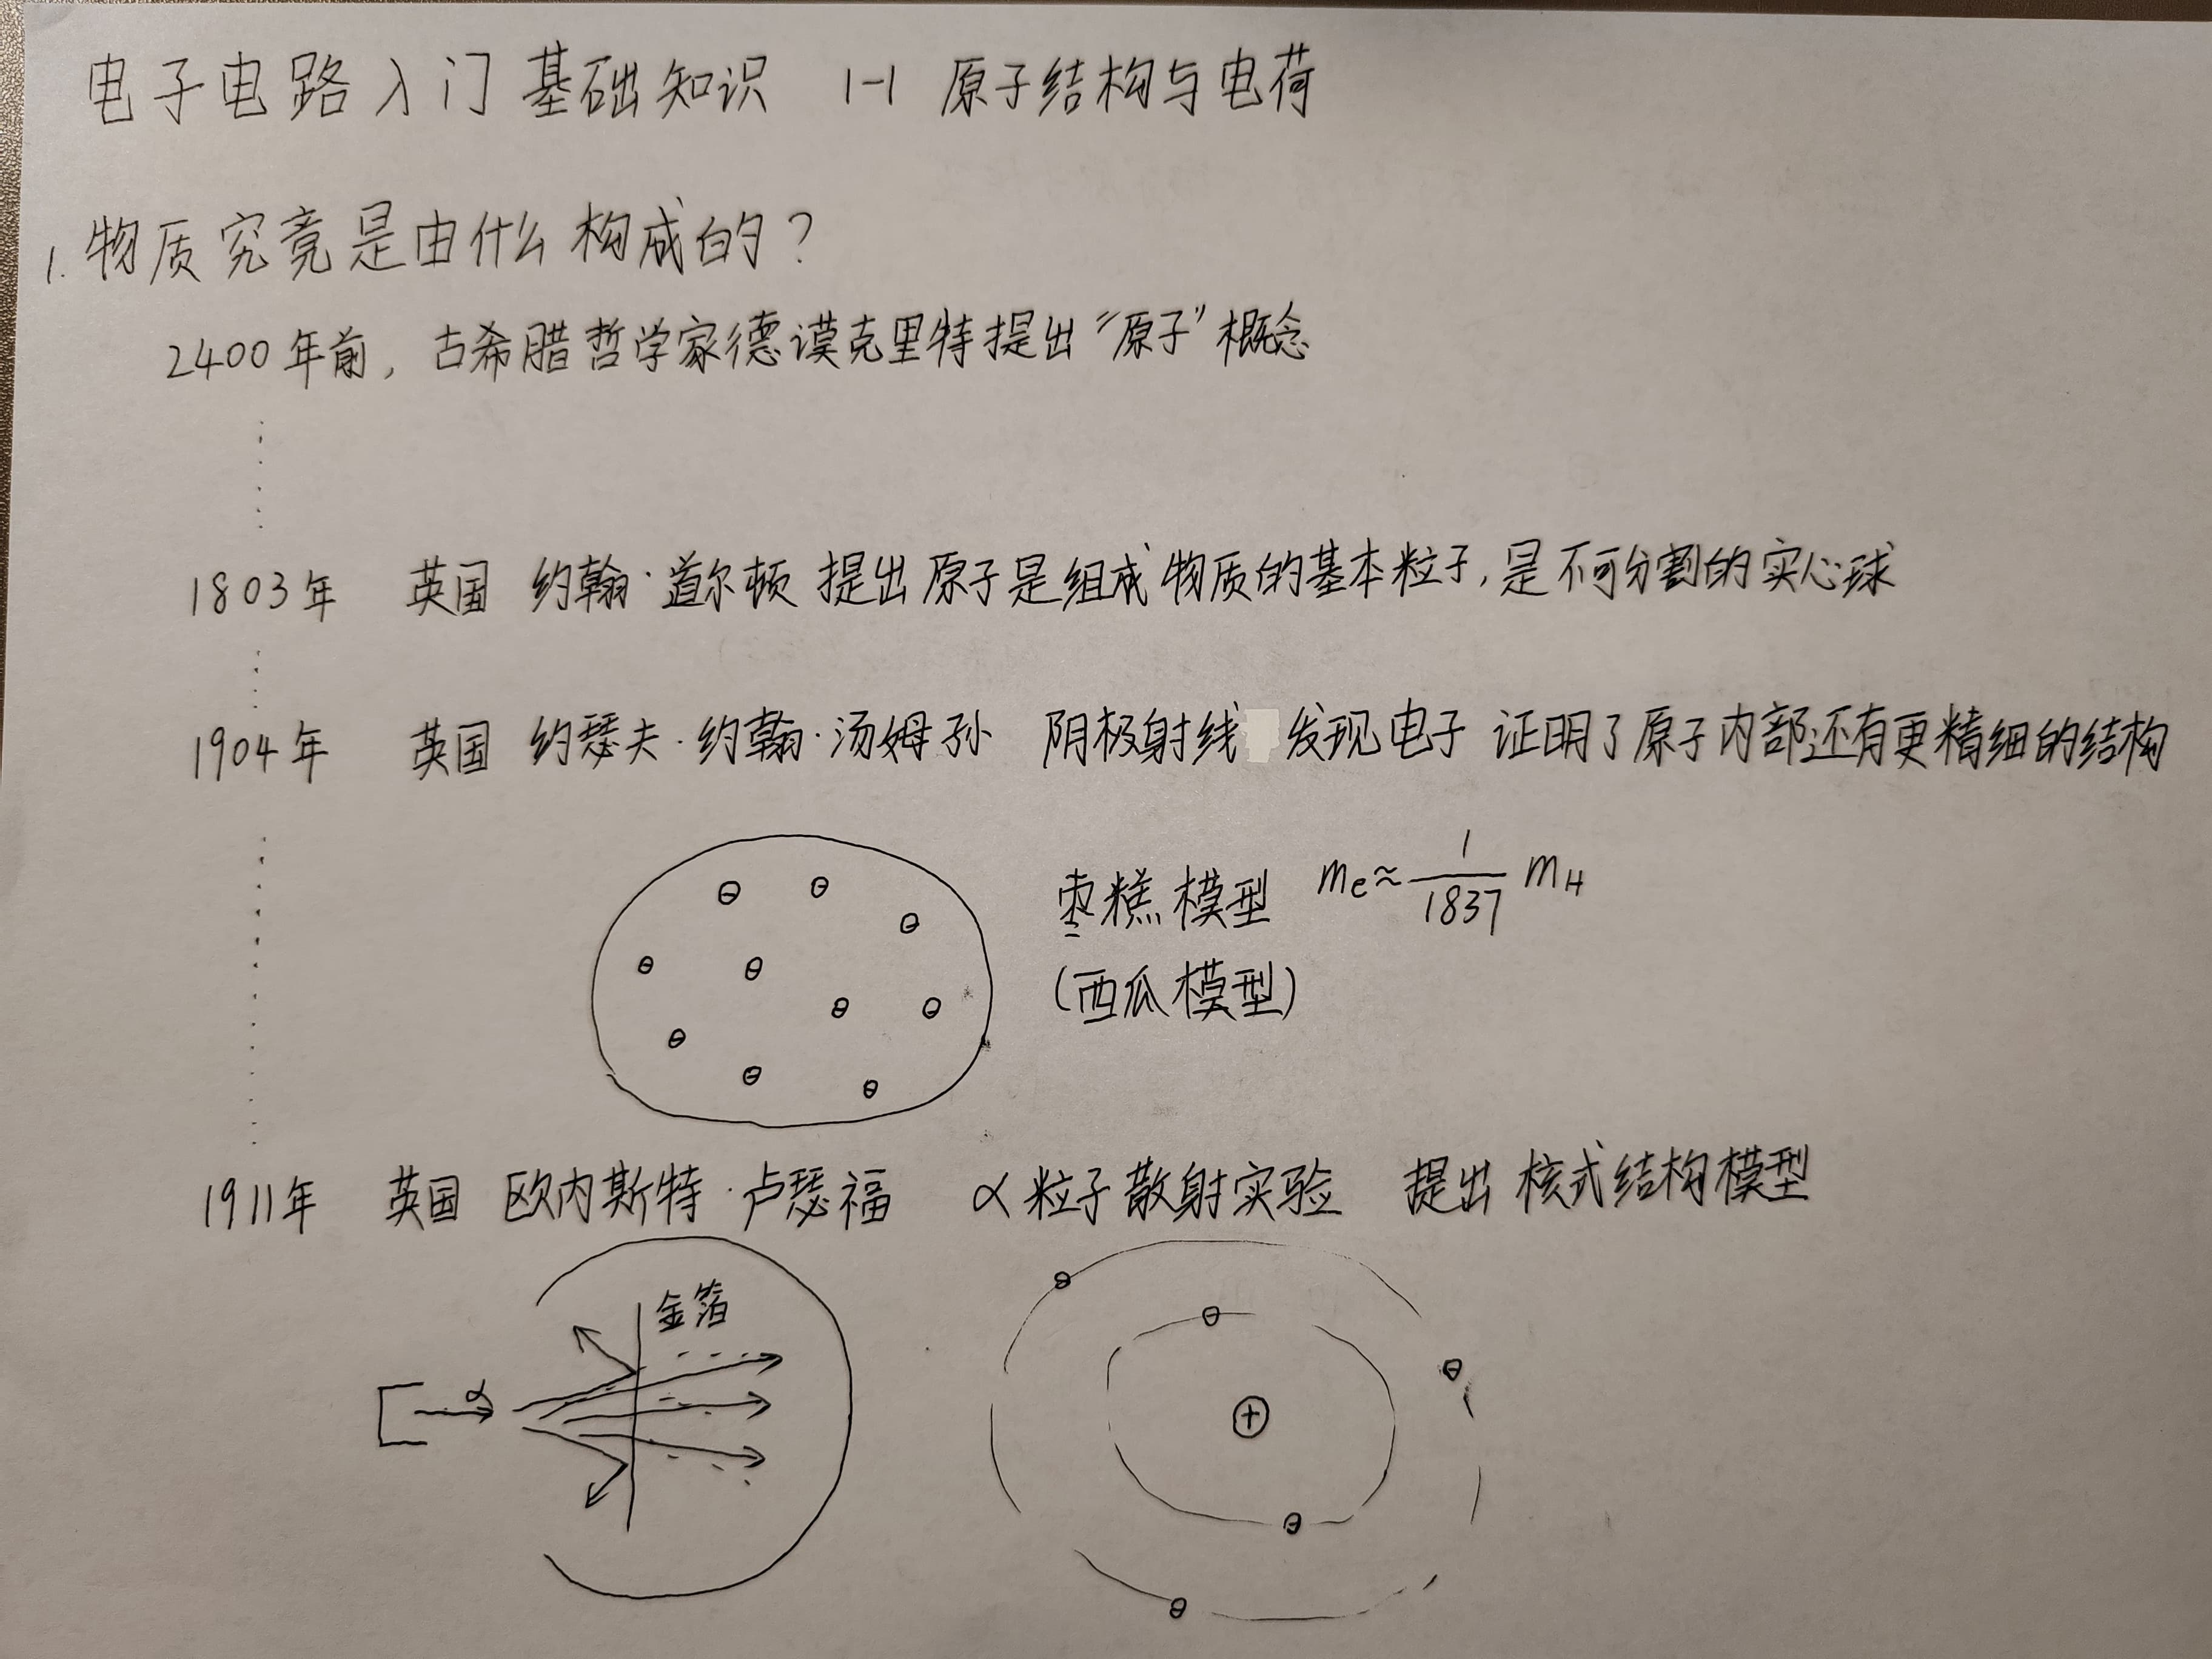 电子电路入门基础知识 1-1 原子结构与电荷
1. 物质究竟是由什么构成的？
2400年前，古希腊哲学家德谟克里特提出“原子”概念
1803年 英国 约翰·道尔顿 提出原子是组成物质的基本粒子，是不可分割的实心球
1904年 英国 约瑟夫·约翰·汤姆孙 阴极射线 发现电子 证明了原子内部还有更精细的结构
枣糕模型 me≈1/1837 mH
(西瓜模型)
1911年 英国 欧内斯特·卢瑟福 α粒子散射实验 提出核式结构模型
金箔
α